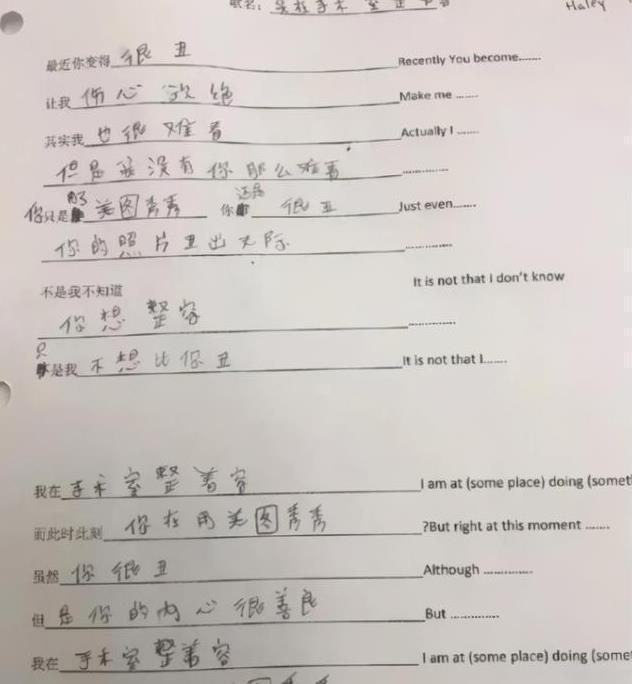 歌名： 我在手术室整着容 Haley
最近你变得 很丑 Recently You become.......
让我 伤心欲绝 Make me .......
其实我 也很难看 Actually I .......
但是我没有你那么难看 ..............
你只是用了美图秀秀 你还是很丑 Just even.......
你的照片丑出天际 ..............
不是我不知道 It is not that I don't know
你想整容 ..............
只是我 不想比你丑 It is not that I.......
我在 手术室整着容 I am at (some place) doing (somet
而此时此刻 你在用美图秀秀 ?But right at this moment .......
虽然 你很丑 Although ..............
但 是你的内心很善良 But ..............
我在 手术室整着容 I am at (some place) doing (some